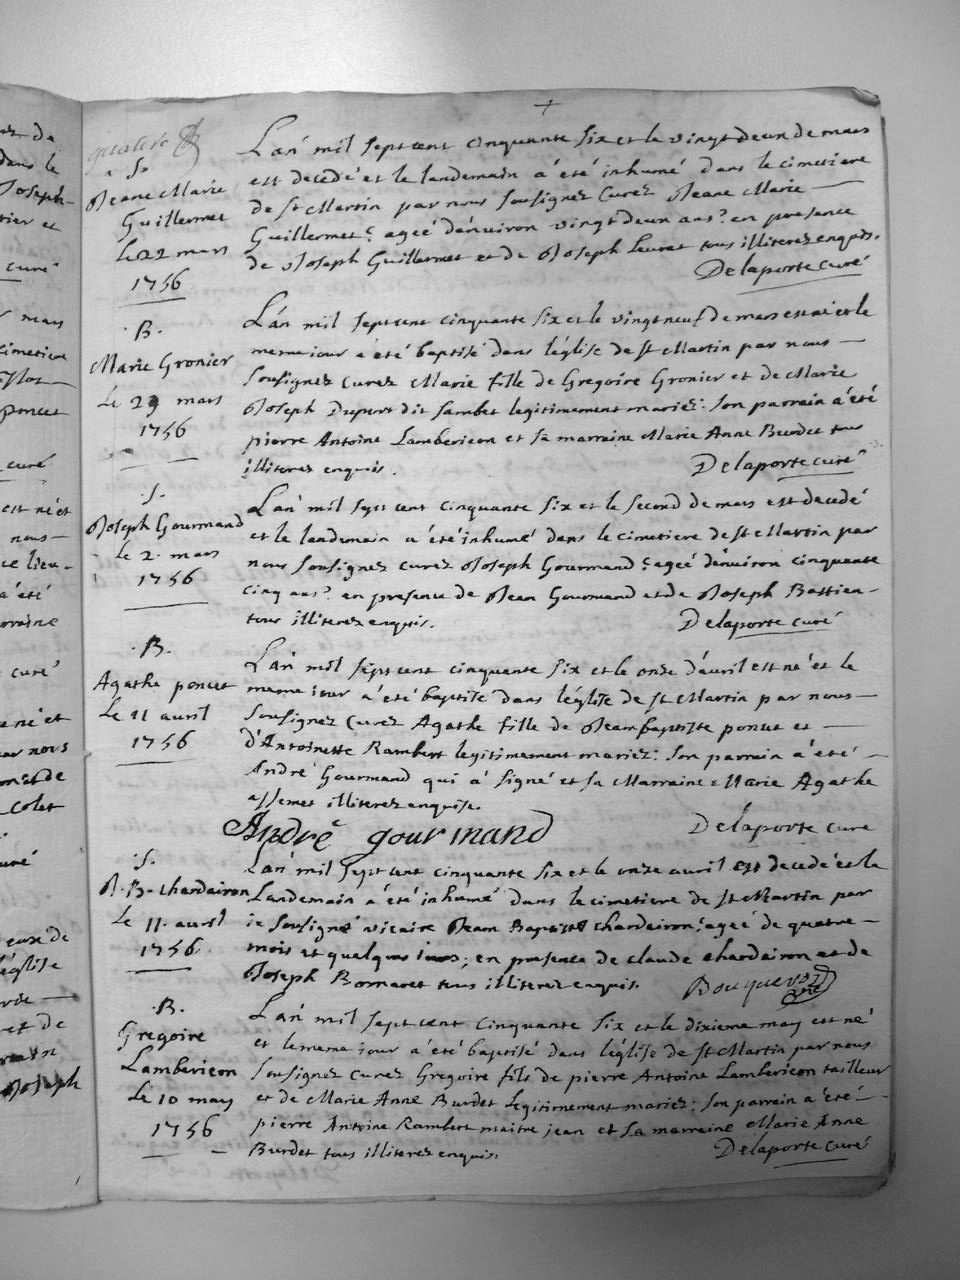 quatre
S.
Jeane Marie
Guillermet
Le 22 mars
1756
L'an mil sept cent cinquante six et le vingt deux de mars
est decedé et le landemain a été inhumé dans le cimetiere
de st Martin par nous sousignez curez Jeane Marie
Guillermet agée d'enuiron vingt deux ans en presence
de Joseph Guillermet et de Joseph Leurat tous illiterez enquis.
Delaporte curé
B.
Marie Gronier
Le 29 mars
1756
L'an mil sept cent cinquante six et le vingt neuf de mars est né et le
meme iour a été baptisé dans l'église de st Martin par nous
sousignez curez Marie fille de Gregoire Gronier et de Marie
Joseph Dupert dit Sambet legitimement mariez: son parrain a été
pierre Antoine Lambericon et sa marraine Marie Anne Burdet tous
illiterez enquis.
Delaporte curé
S.
Joseph Gourmand
Le 2. mars
1756
L'an mil sept cent cinquante six et le second de mars est decedé
et le landemain a été inhumé dans le cimetiere de st Martin par
nous sousignez curez Joseph Gourmand agée d'enuiron cinquante
cinq ans en presence de Jean Gourmand et de Joseph Bastien
tous illiterez enquis.
Delaporte curé
B.
Agathe poncet
Le 11 auril
1756
L'an mil sept cent cinquante six et le onze d'auril est né et le
meme iour a été baptisé dans l'église de st Martin par nous
sousignez curez Agathe fille de Jean baptiste poncet et
d'Antoinette Rambert legitimement mariez: son parrain a été
André Gourmand qui a signé et sa Marraine Marie Agathe
assemet illiterez enquise.
André gourmand
Delaporte curé
S.
J. B. chardairon
Le 11. auril
1756
L'an mil sept cent cinquante six et le onze auril est decedé et le
Landemain a été inhumé dans le cimetiere de st Martin par
ie sousigné vicaire Jean Baptiste chardairon agée de quatre
mois et quelques iours; en presence de claude chardairon et de
Joseph Bornaret tous illiterez enquis.
B.
Gregoire
Lambericon
Le 10 may
1756
L'an mil sept cent cinquante six et le dixieme may est né
et le meme iour a été baptisé dans l'église de st Martin par nous
sousignez curez Gregoire fils de pierre Antoine Lambericon tailleur
et de Marie Anne Burdet Legitimement mariez: son parrain a été
pierre Antoine Rambert maitre jean et sa marraine Marie Anne
Burdet tous illiterez enquis.
Delaporte curé